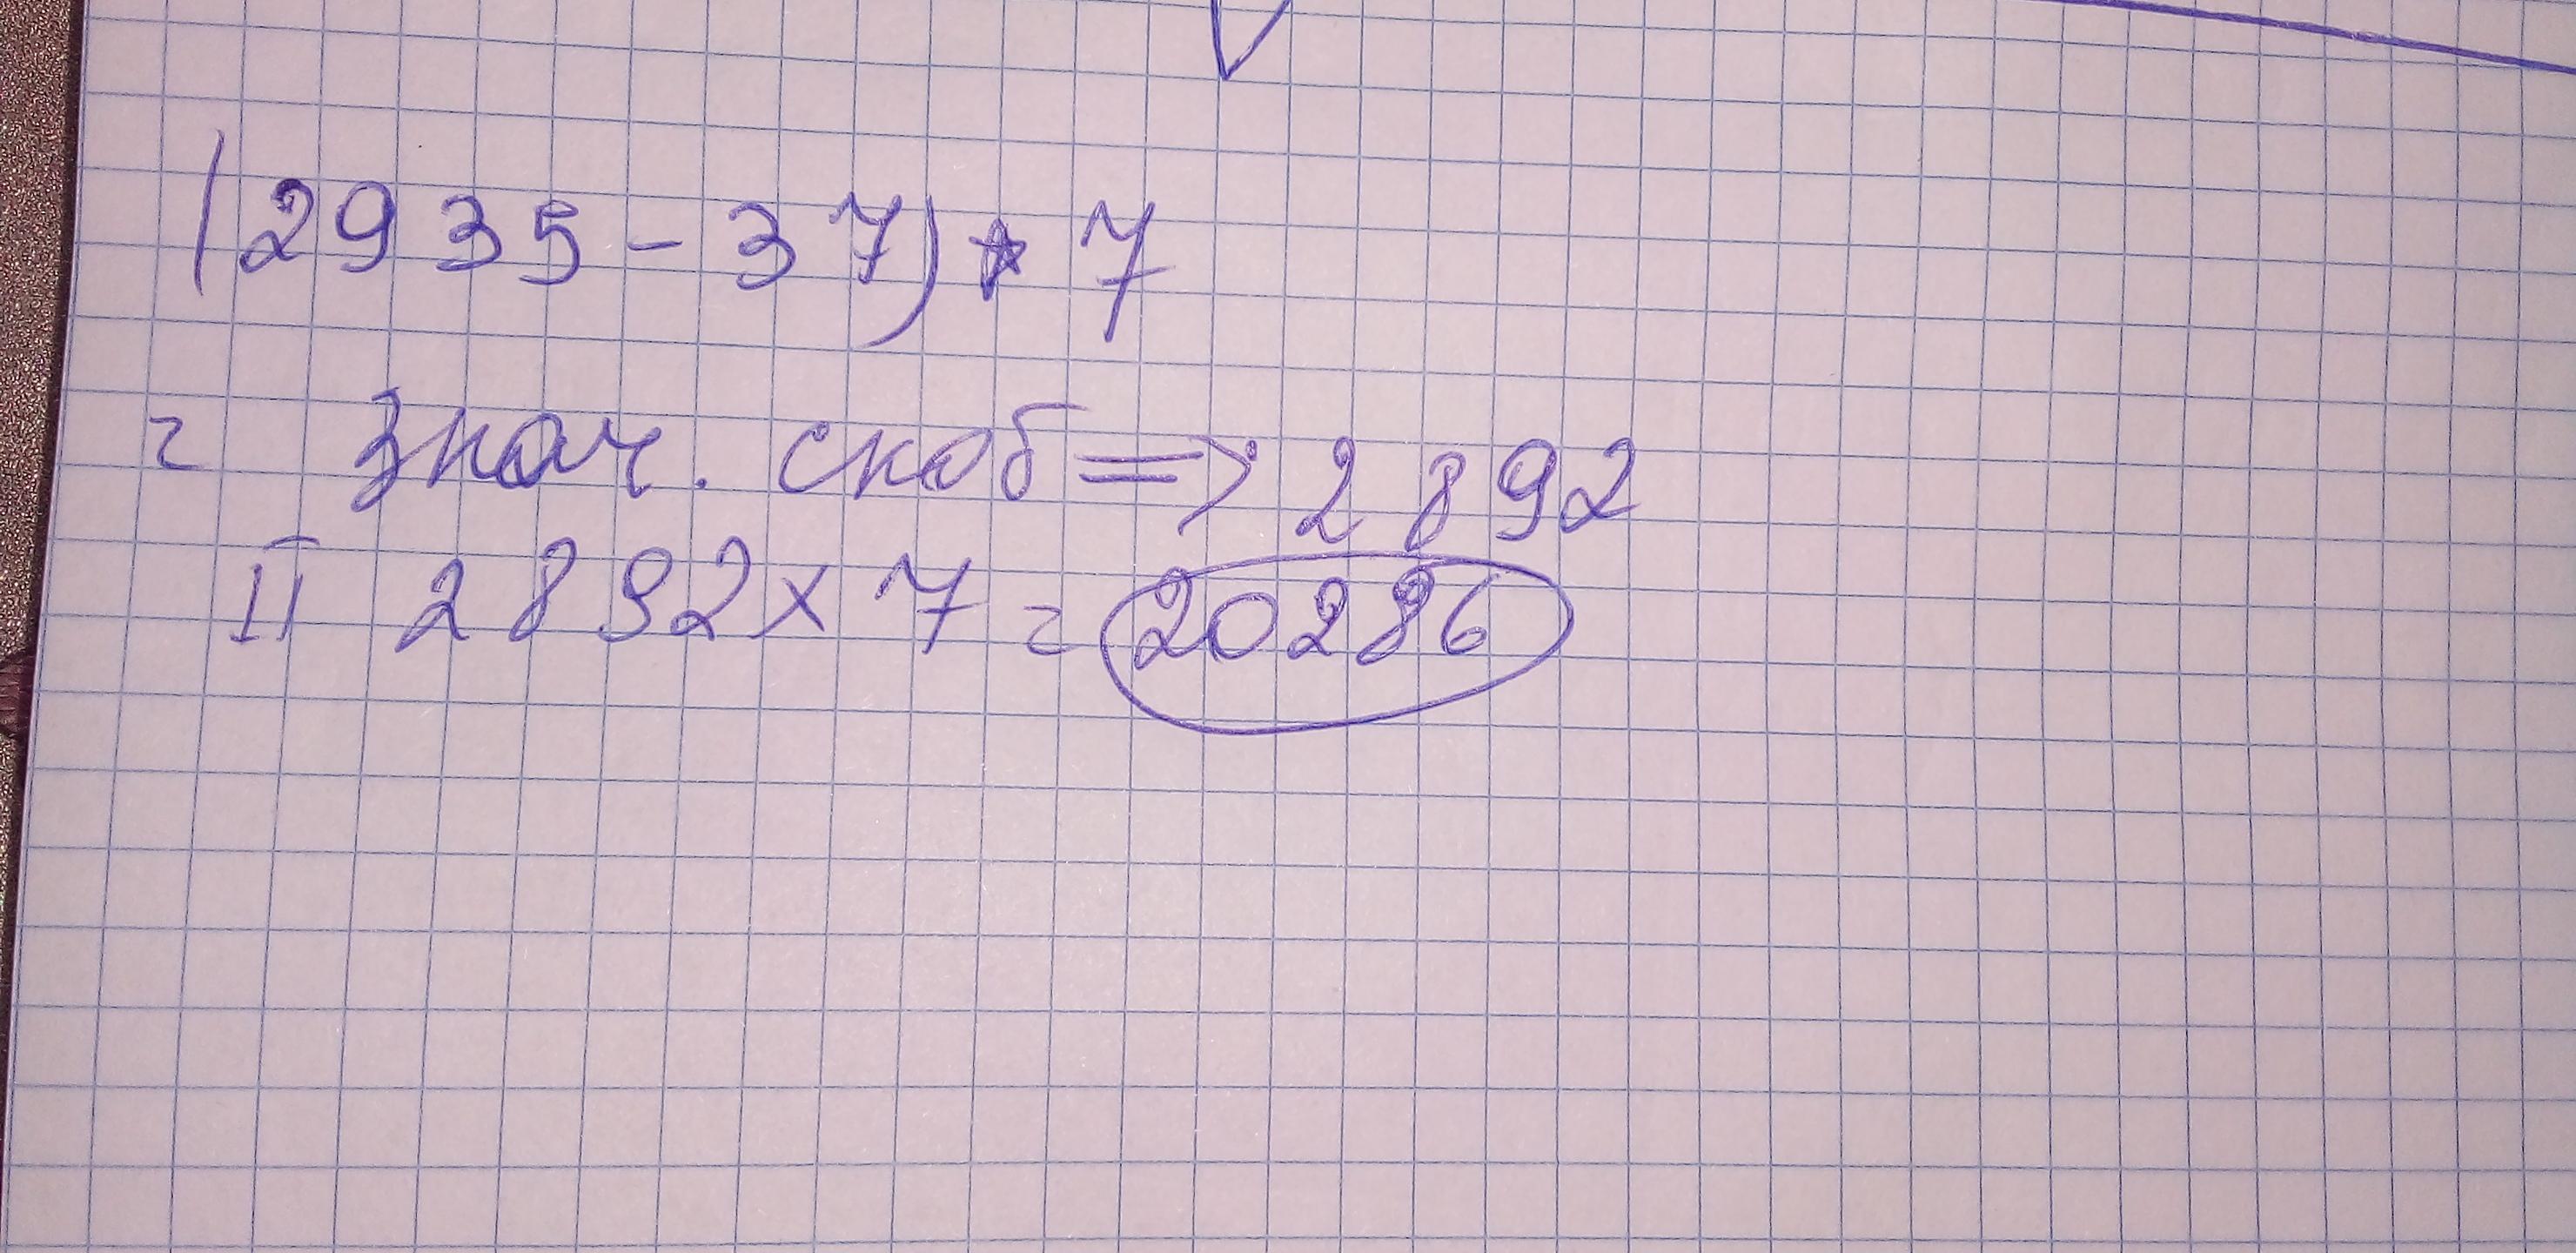 (2935-37)*7
= знач. скоб => 2892
II 2892x7=20286